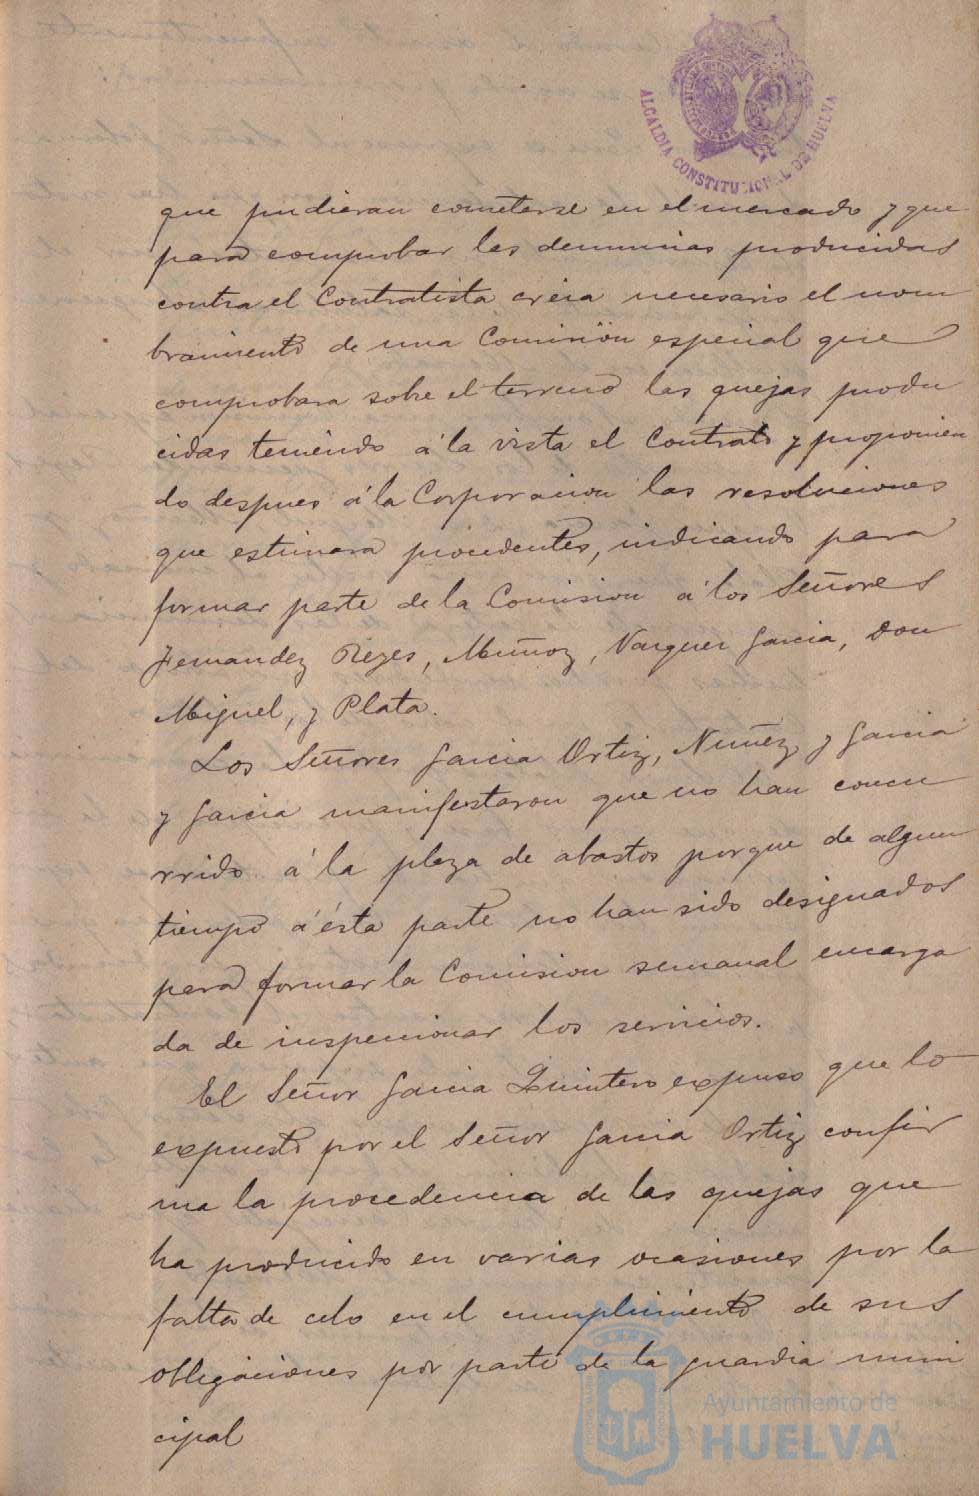 ALCALDIA CONSTITUCIONAL DE HUELVA
que pudieran cometerse en el mercado y que
para comprobar las denuncias producidas
contra el Contratista creia necesario el nom
bramiento de una Comision especial que
comprobara sobre el terreno las quejas produ
cidas teniendo á la vista el Contrato y proponien
do despues á la Corporacion las resoluciones
que estimara procedentes, indicando para
formar parte de la Comision á los Señores
Fernandez Reyes, Muñoz, Vazquez Garcia, Don
Miguel, y Plata.
Los Señores Garcia Ortiz, Nuñez y Garcia
y Garcia manifestaron que no han concu
rrido á la plaza de abastos porque de algun
tiempo á ésta parte no han sido designados
para formar la Comision semanal encarga
da de inspecionar los servicios.
El Señor Garcia Quintero expuso que lo
expuesto por el Señor Garcia Ortiz confir
ma la procedencia de las quejas que
ha producido en varias ocasiones por la
falta de celo en el cumplimiento de sus
obligaciones por parte de la guardia muni
cipal
Ayuntamiento de
HUELVA